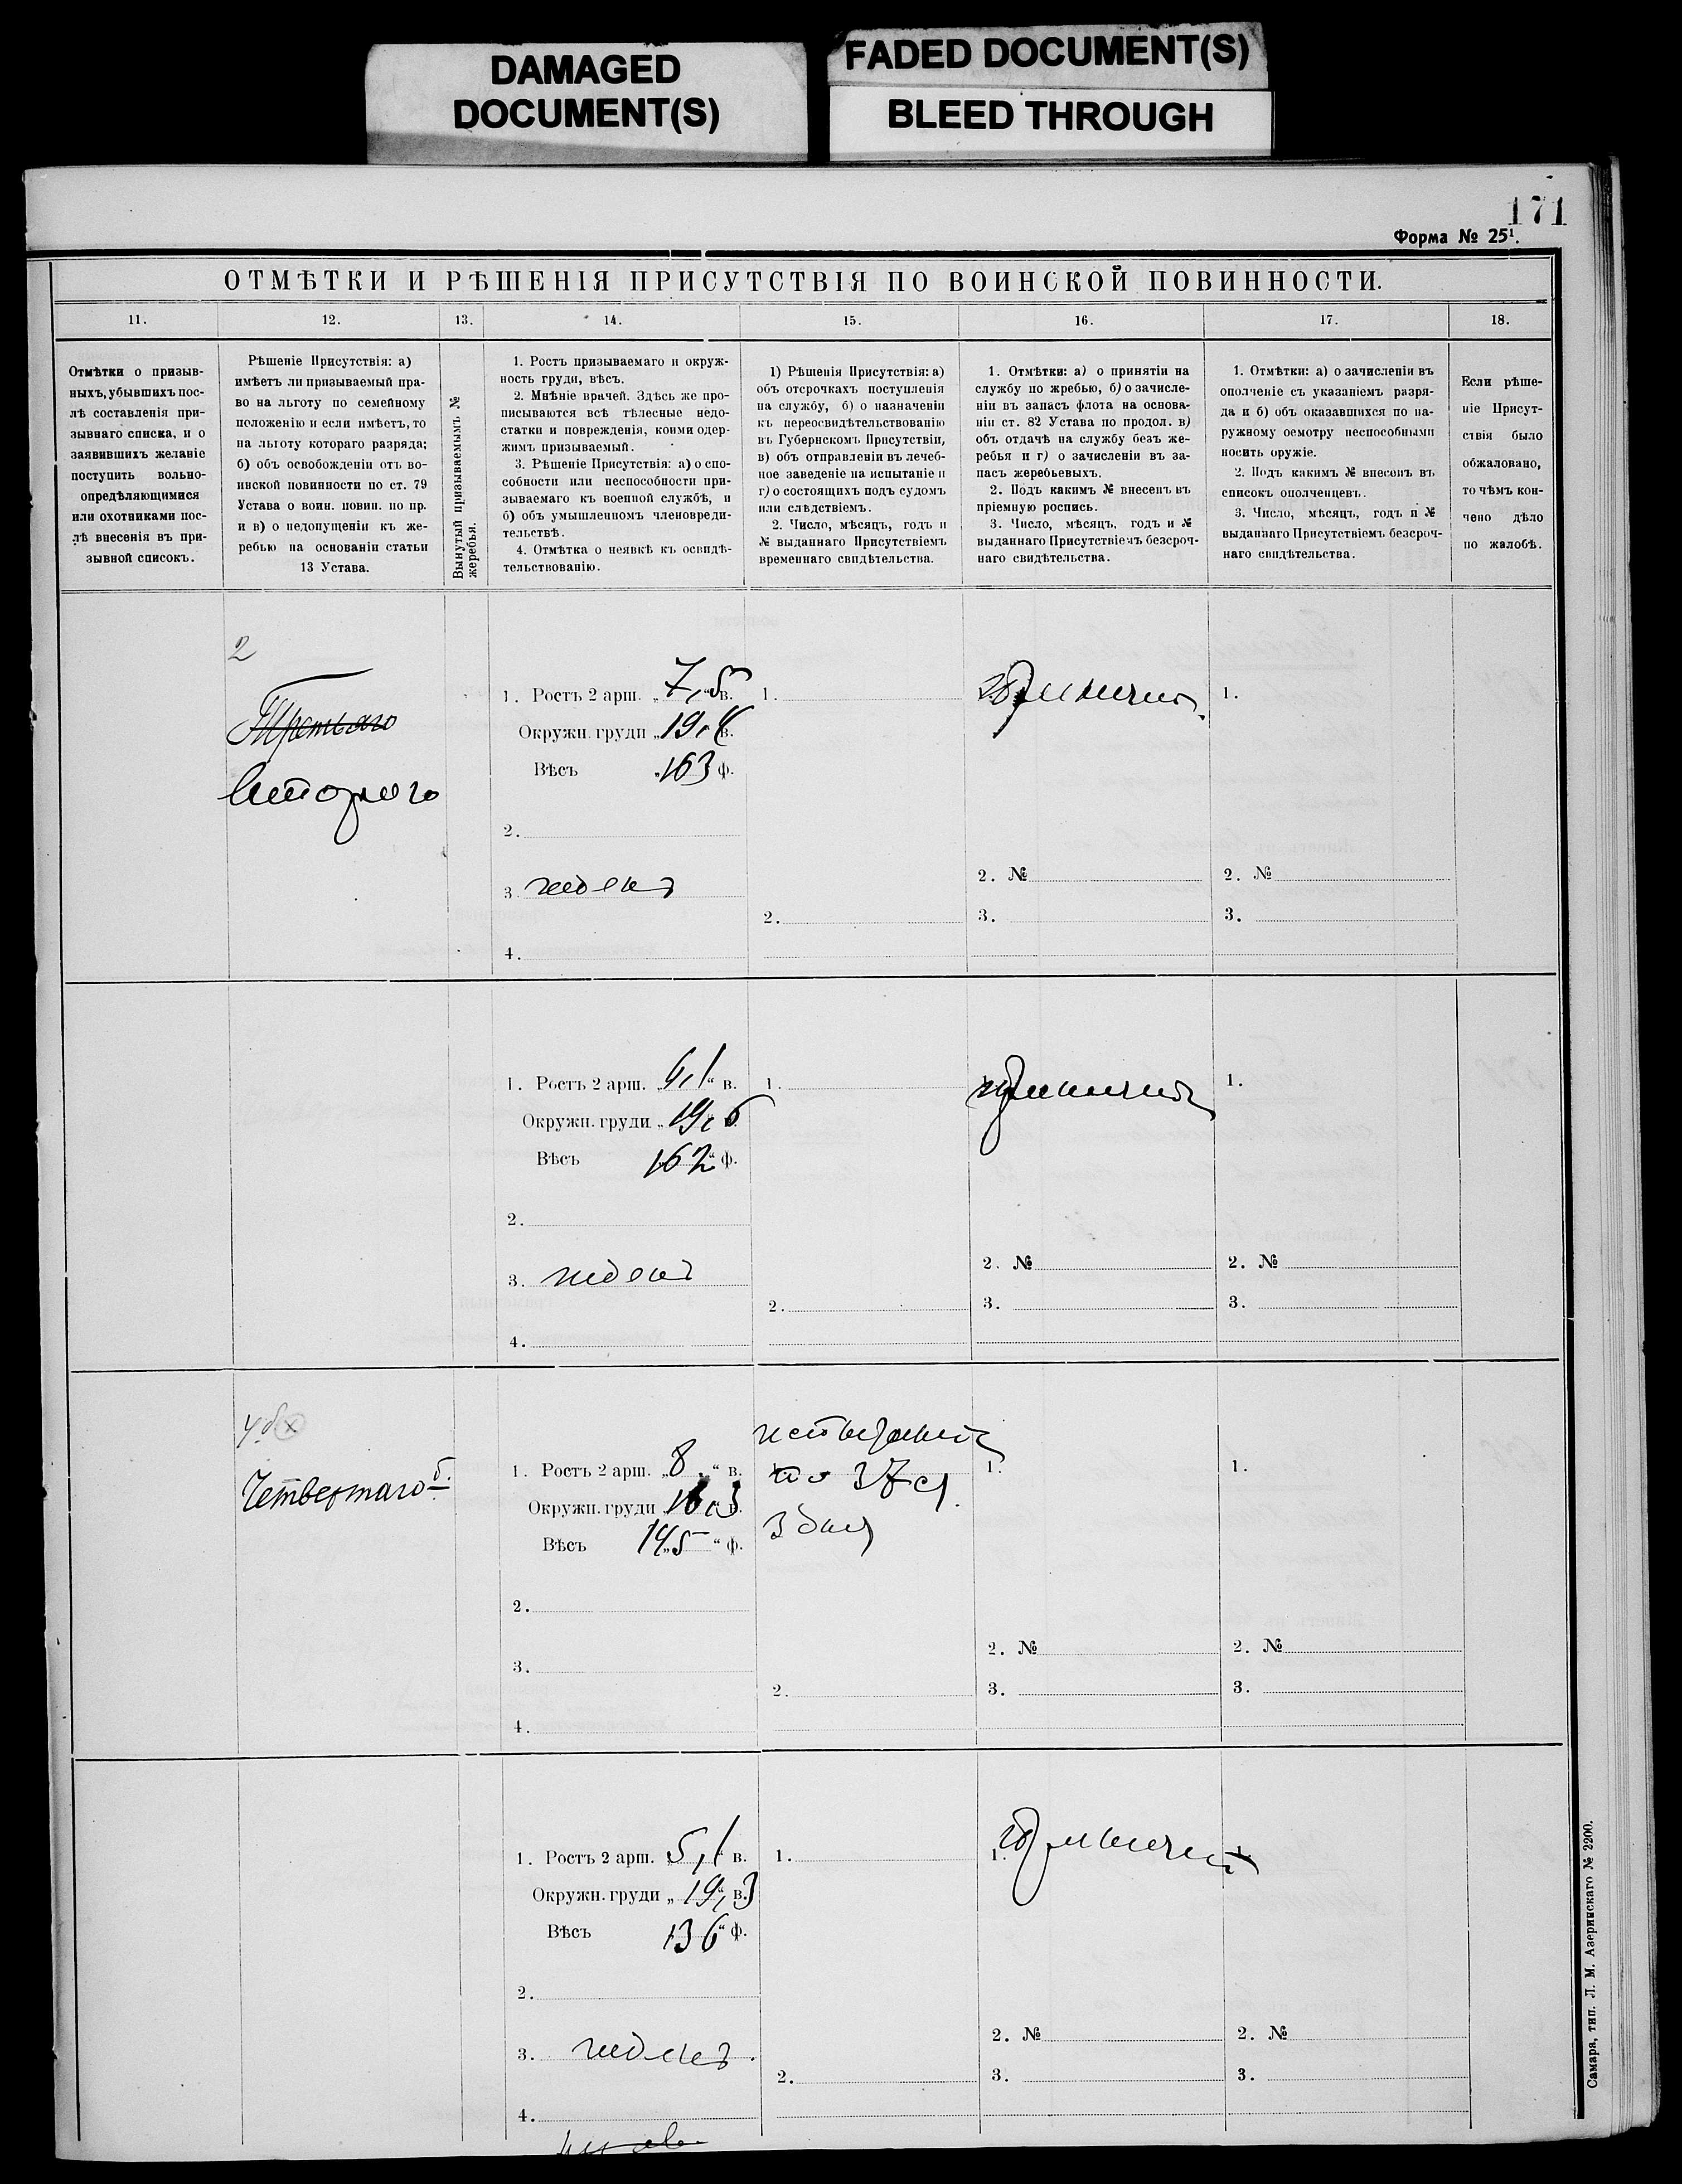 DAMAGED
DOCUMENT(S)
FADED DOCUMENT(S)
BLEED THROUGH
171
Форма № 25¹.
ОТМѢТКИ И РѢШЕНІЯ ПРИСУТСТВІЯ ПО ВОИНСКОЙ ПОВИННОСТИ.
11. 12. 13. 14. 15. 16. 17. 18.
Отмѣтки о призыв-
ныхъ, убывшихъ пос-
лѣ составленія при-
зывнаго списка, и о
заявившихъ желаніе
поступить вольно-
опредѣляющимися
или охотниками пос-
лѣ внесенія въ при-
зывной списокъ.
Рѣшеніе Присутствія: а)
имѣетъ ли призываемый пра-
во на льготу по семейному
положенію и если имѣетъ, то
на льготу котораго разряда;
б) объ освобожденіи отъ во-
инской повинности по ст. 79
Устава о воин. повин. по пр.
и в) о недопущеніи къ же-
ребью на основаніи статьи
13 Устава.
Вынутый призываемымъ №
жеребья.
1. Ростъ призываемаго и окруж-
ность груди, вѣсъ.
2. Мнѣніе врачей. Здѣсь же про-
писываются всѣ тѣлесные недо-
статки и поврежденія, коими одер-
жимъ призываемый.
3. Рѣшеніе Присутствія: а) о спо-
собности или неспособности при-
зываемаго къ военной службѣ, и
б) объ умышленномъ членовреди-
тельствѣ.
4. Отмѣтка о неявкѣ къ освидѣ-
тельствованію.
1) Рѣшенія Присутствія: а)
объ отсрочкахъ поступленія
на службу, б) о назначеніи
къ переосвидѣтельствованію
въ Губернскомъ Присутствіи,
в) объ отправленіи въ лечеб-
ное заведеніе на испытаніе и
г) о состоящихъ подъ судомъ
или слѣдствіемъ.
2. Число, мѣсяцъ, годъ и
№ выданнаго Присутствіемъ
временнаго свидѣтельства.
1. Отмѣтки: а) о принятіи на
службу по жребью, б) о зачисле-
ніи въ запасъ флота на основа-
ніи ст. 82 Устава по продол. в)
объ отдачѣ на службу безъ же-
ребья и г) о зачисленіи въ за-
пасъ жеребьевыхъ.
2. Подъ какимъ № внесенъ въ
пріемную роспись.
3. Число, мѣсяцъ, годъ и №
выданнаго Присутствіемъ безсроч-
наго свидѣтельства.
1. Отмѣтки: а) о зачисленіи въ
ополченіе съ указаніемъ разря-
да и б) объ оказавшихся по на-
ружному осмотру неспособными
носить оружіе.
2. Подъ какимъ № внесенъ въ
списокъ ополченцевъ.
3. Число, мѣсяцъ, годъ и №
выданнаго Присутствіемъ безсроч-
наго свидѣтельства.
Если рѣше-
ніе Присут-
ствія было
обжаловано,
то чѣмъ кон-
чено дѣло
по жалобѣ.
2
Третьяго
Второго
1. Ростъ 2 арш. „7,5 в.
Окружн. груди „19, в.
Вѣсъ „163 ф.
2.
3. годенъ
4.
1.
2.
принятъ
2. №
3.
1.
2. №
3.
1. Ростъ 2 арш. „6,1“ в.
Окружн. груди „19,6
Вѣсъ 162“ ф.
2.
3. годенъ
4.
1.
2.
принятъ
2. №
3.
1.
2. №
3.
Четвертаго б.
1. Ростъ 2 арш. „8 “ в.
Окружн. груди „18,3 в.
Вѣсъ 145 “ ф.
2.
3.
4.
по 37 ст.
2.
1.
2. №
3.
1.
2. №
3.
1. Ростъ 2 арш. „5,1“ в.
Окружн. груди „19,3 в.
Вѣсъ 136“ ф.
2.
3. годенъ
4.
1.
2.
1. принятъ
2. №
3.
1.
2. №
3.
Самара, тип. Л. М. Азеринскаго № 2200.